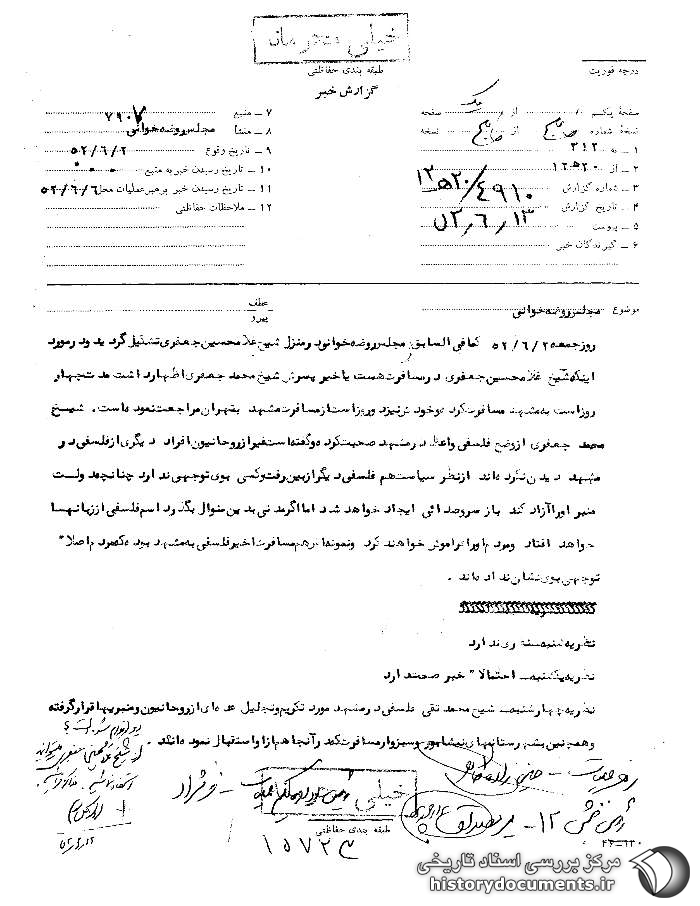 خیلی محرمانه
طبقه بندی حفاظتی
درجه فوریت
گزارش خبر
صفحهٔ یکم از یک صفحه
نسخهٔ شماره از نسخه
۱ ــ به ۳۱۲
۲ ــ از ۱۲ ه‍ ۲۰
۳ ــ شماره گزارش ۱۲ ه‍ ۲۰/۴۹۱۰
۴ ــ تاریخ گزارش ۵۲٫۶٫۱۳
۵ ــ پیوست
۶ ــ گیرندگان خبر
۷ ــ منبع ۷۹۰۷
۸ ــ منشأ مجلس روضه خوانی
۹ ــ تاریخ وقوع ۵۲/۶/۲
۱۰ ــ تاریخ رسیدن خبر به منبع
۱۱ ــ تاریخ رسیدن خبر برهبر عملیات محل ۵۲/۶/۶
۱۲ ــ ملاحظات حفاظتی
عطف
پیرو
موضوع مجلس روضه خوانی
روز جمعه ۵۲/۶/۲ کمافی السابق مجلس روضه خوانی در منزل شیخ غلامحسین جعفری تشکیل گردید و در مورد
اینکه شیخ غلامحسین جعفری در مسافرت هست یا خیر پسرش شیخ محمد جعفری اظهار داشت مدت چهار
روز است به مشهد مسافرت کرده و خود ش نیز دو روز است از مسافرت مشهد بتهران مراجعت نموده است . شیخ
محمد جعفری از وضع فلسفی واعظ در مشهد صحبت کرد و گفته است غیر از روحانیون افراد دیگری از فلسفی در
مشهد دیدن نکرده اند از نظر سیاست هم فلسفی دیگر از بین رفته و کسی بوی توجهی ندارد چنانچه دولت
منبر او را آزاد کند باز سر و صدائی ایجاد خواهد شد اما اگر مدتی بدین منوال بگذرد اسم فلسفی از زبانها
خواهد افتاد و مردم او را فراموش خواهند کرد و نمونه اش هم مسافرت اخیر فلسفی به مشهد بوده که مردم اصلا"
توجهی بوی نشان نداده اند .
نظریه شنبه ـ نظری ندارد
نظریه یکشنبه ـ احتمالا" خبر صحت دارد
نظریه چهارشنبه ـ شیخ محمد تقی فلسفی در مشهد مورد تکریم و تجلیل عده ای از روحانیون و منبریها قرار گرفته
و همچنین بشهرستانهای نیشابور و سبزوار مسافرت کرد که در آنجا هم از او استقبال نموده اند .
رهبر عملیات ـ
خیلی
طبقه بندی حفاظتی
۱۵۷۲۳
۲۴ــ۶۳۰
مرکز بررسی اسناد تاریخی
historydocuments.ir